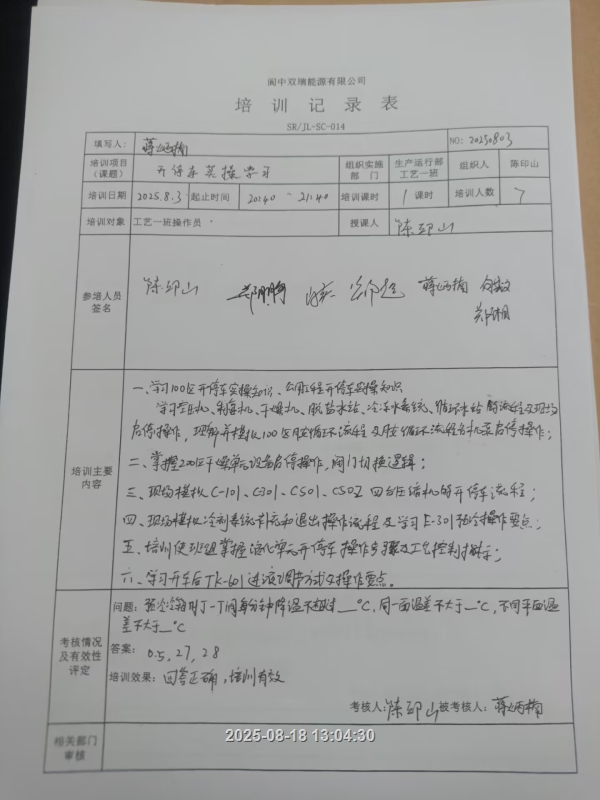 阆中双瑞能源有限公司
培训记录表
SR/JL-SC-014
填写人： 蒋炳楠 NO: 20250803
培训项目（课题） 开停车实操学习 组织实施部门 生产运行部工艺一班 组织人 陈印山
培训日期 2025.8.3 起止时间 20:40 ~ 21:40 培训课时 1 课时 培训人数 7
培训对象 工艺一班操作员 授课人 陈印山
参培人员签名 陈印山 蒋炳楠
培训主要内容
一、学习100区开停车实操知识、公用工程开停车实操知识
学习空压机、制氮机、干燥机、脱盐水站、冷冻水系统、循环水站的流程及现场
启停操作，理解并模拟100区胺循环流程及胺循环流程各机泵启停操作；
二、掌握200区干燥单元设备启停操作，阀门切换逻辑；
三、现场模拟C-101、C301、C501、C502四台压缩机的开停车流程；
四、现场模拟冷剂系统补充和退出操作流程及学习E-301预冷操作要点；
五、培训使班组掌握液化单元开停车操作步骤及工艺控制指标；
六、学习开车后TK-601进液调节方式及操作要点。
考核情况及有效性评定
问题：预冷冷箱时J-T阀每分钟降温不超过__℃，同一面温差不大于__℃，不同平面温
差不大于__℃
答案： 0.5, 27, 28
培训效果：回答正确，培训有效
考核人：陈印山 被考核人：蒋炳楠
相关部门审核
2025-08-18 13:04:30